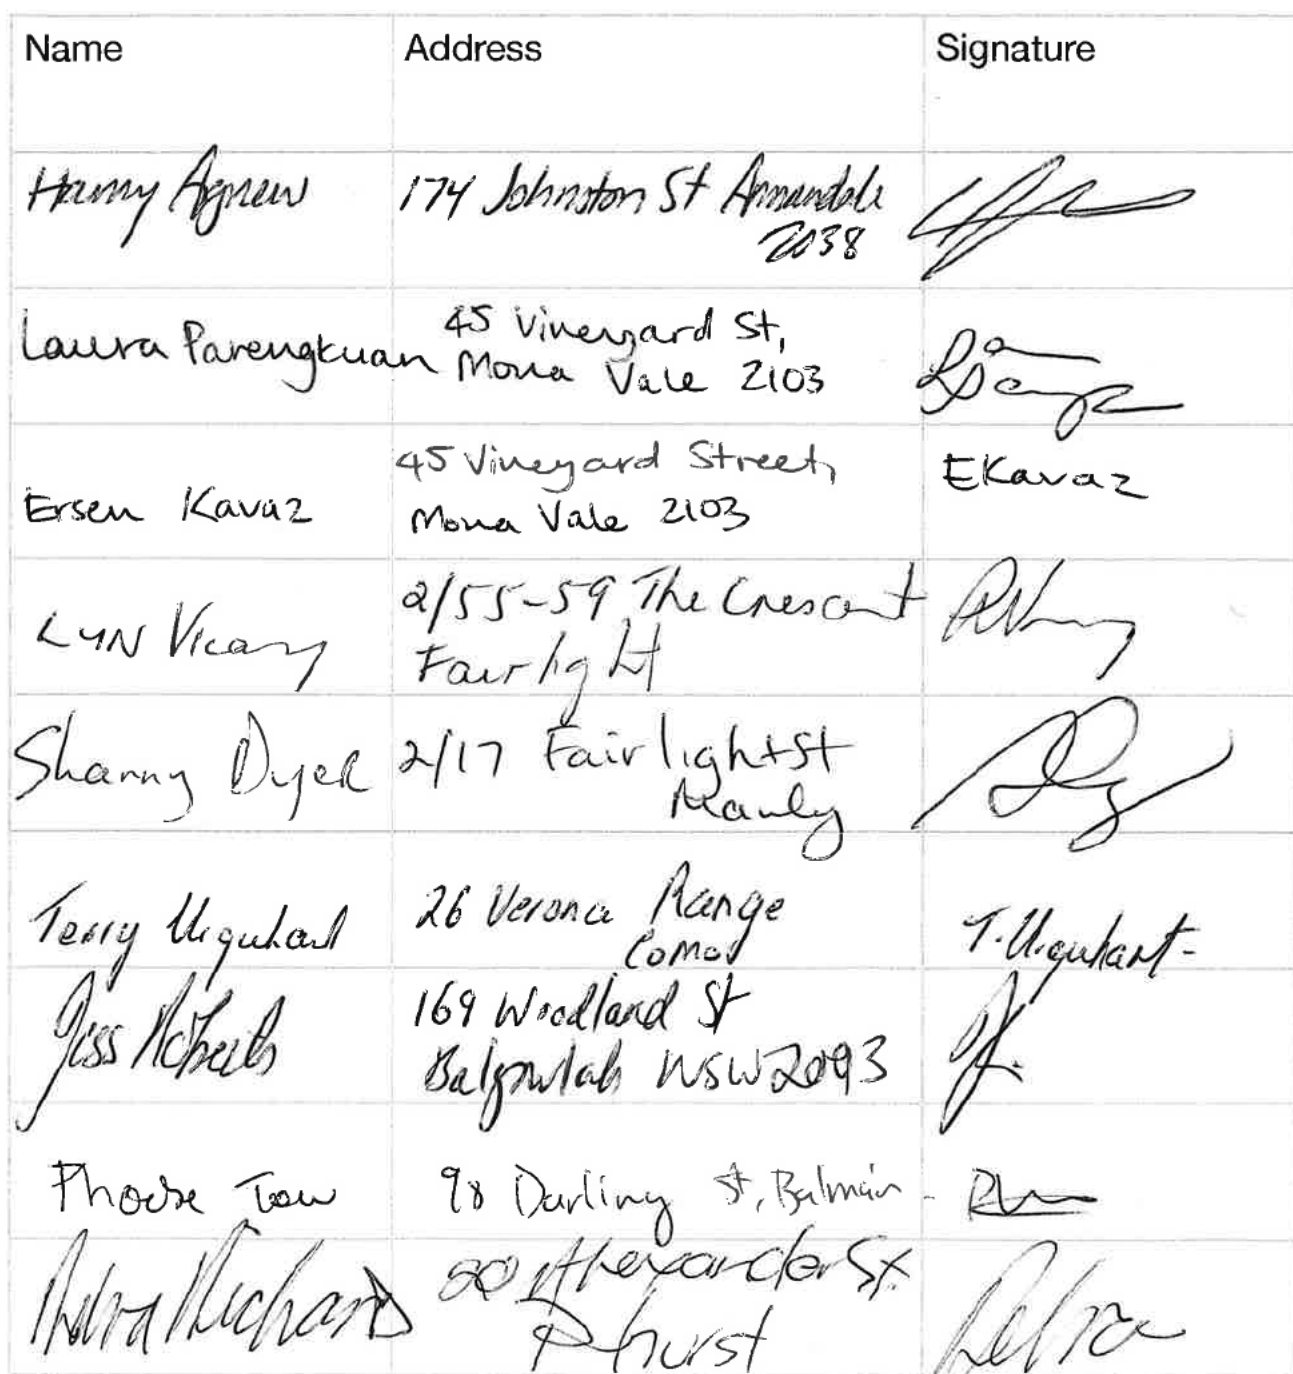 Name Address Signature
Harry Agnew 174 Johnston St Annandale
2038
Laura Parengkuan 45 Vineyard St,
Mona Vale 2103
Ersen Kavaz 45 Vineyard Street, EKavaz
Mona Vale 2103
LYN Vicary 2/55-59 The Crescent
Fairlight
Sharny Dyer 2/17 Fairlight St
Manly
Terry Urquhart 26 Verona Range T. Urquhart-
Como
Jess Roberts 169 Woodland St
Balgowlah NSW 2093
Phoebe 98 Darling St, Balmain
Richards Alexander St. Debra
P hurst